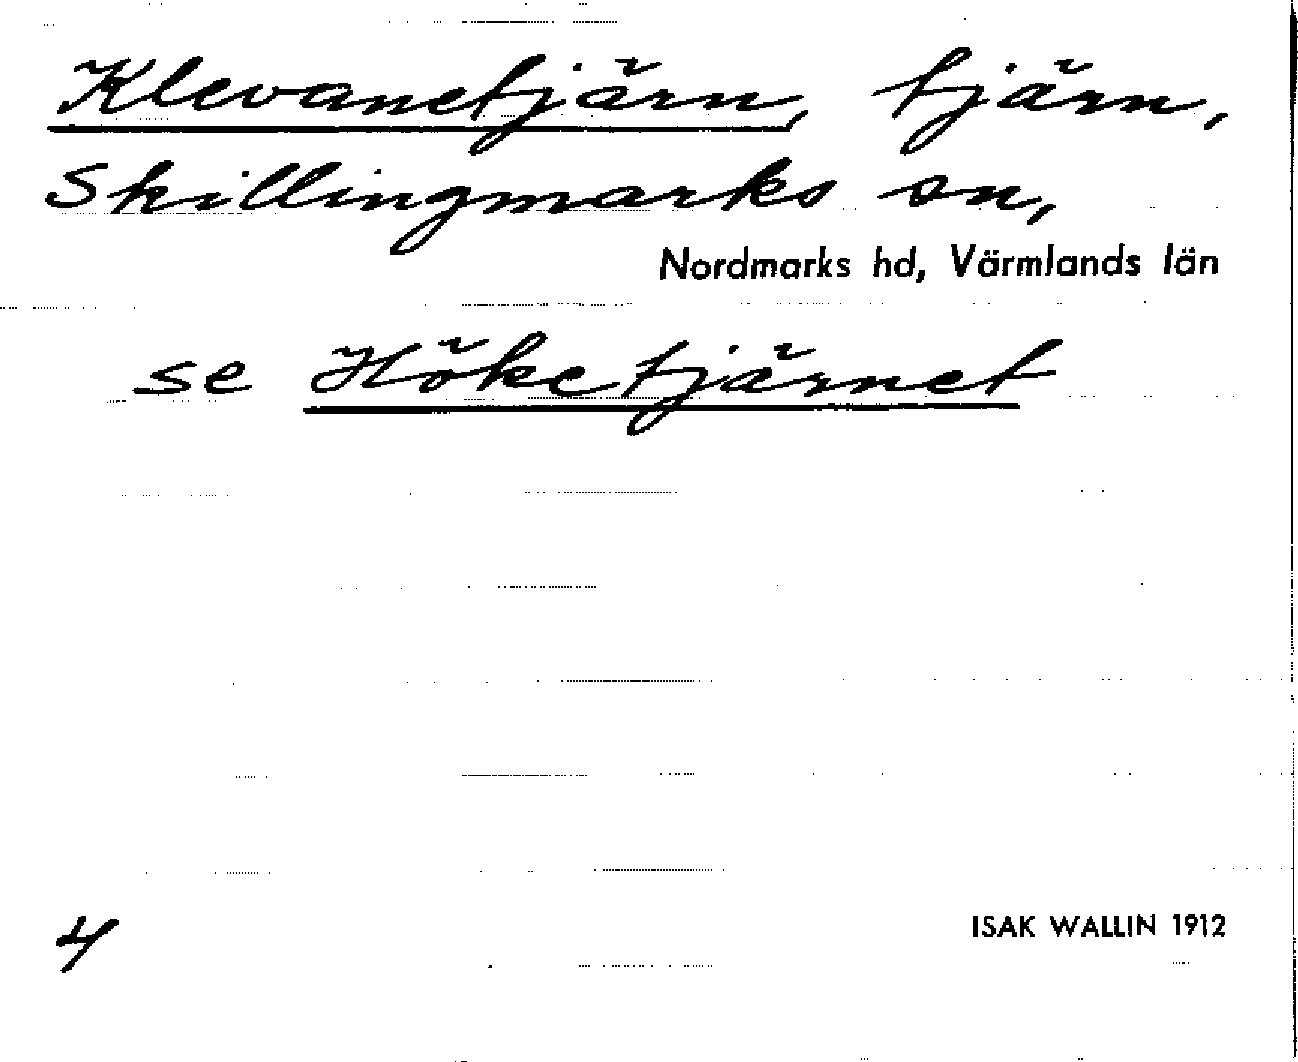 Klevanetjärn, tjärn,
Skillingmarks sn,
Nordmarks hd, Värmlands län
se Höketjärnet
4
ISAK WALLIN 1912